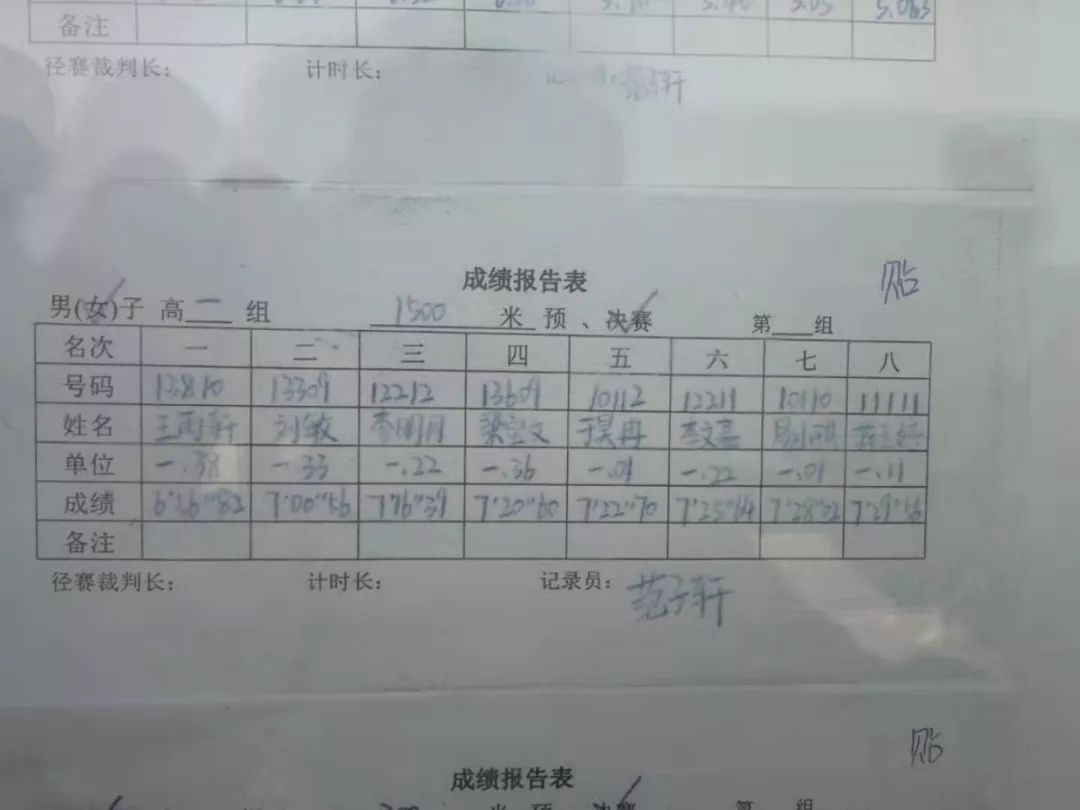 5.063
备注
径赛裁判长： 计时长： 范子轩
贴
成绩报告表
男(女)子 高一组 1500 米 预、决赛 第 组
名次 一 二 三 四 五 六 七 八
号码 13810 13309 12212 13609 10112 12211 10110 11111
姓名 王雨轩 刘敏 李明月 梁宝文 于昊冉
单位 一.38 一.33 一.22 一.36 一.01 一.22 一.01 一.11
成绩 6'26"82 7'00"56 7'16"39 7'20"60 7'22"70 7'25"64 7'28"02 7'29"56
备注
径赛裁判长： 计时长： 记录员： 范子轩
贴
成绩报告表
米 预 、决赛 第 组